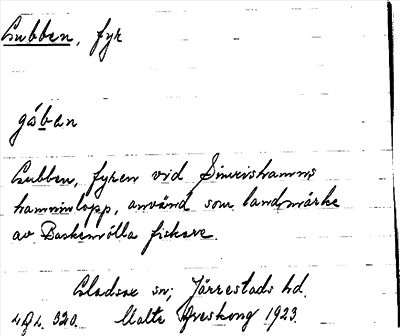 Gubben, fyr
gɷ́ban
Gubben, fyren vid Simrishamns
hamninlopp, använd som landmärke
av Baskemölla fiskare.
Gladsax sn; Järrestads hd.
Malte Areskoug 1923.